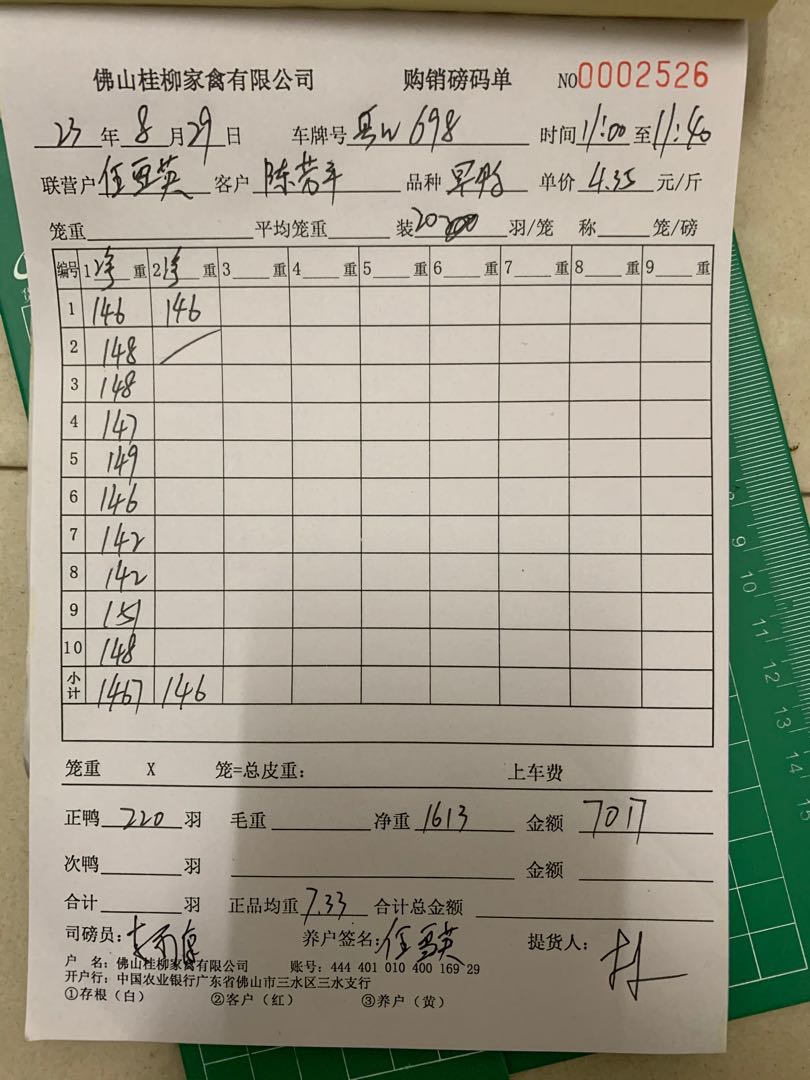 佛山桂柳家禽有限公司 购销磅码单 NO0002526
23 年 8 月 29 日 车牌号 698 时间 11:00 至 11:40
联营户 任雪英 客户 陈 品种 单价 4.35 元/斤
笼重 平均笼重 装 20 羽/笼 称 笼/磅
编号 1 净 重 2 净 重 3 重 4 重 5 重 6 重 7 重 8 重 9 重
1 146 146
2 148
3 148
4 147
5 149
6 146
7 142
8 142
9 151
10 148
小计 1467 146
笼重 X 笼=总皮重: 上车费
正鸭 220 羽 毛重 净重 1613 金额 7017
次鸭 羽 金额
合计 羽 正品均重 7.33 合计总金额
司磅员: 养户签名: 任雪英 提货人:
户 名: 佛山桂柳家禽有限公司 账号: 444 401 010 400 169 29
开户行: 中国农业银行广东省佛山市三水区三水支行
①存根(白) ②客户(红) ③养户(黄)
9
10
11
12
13
14
15